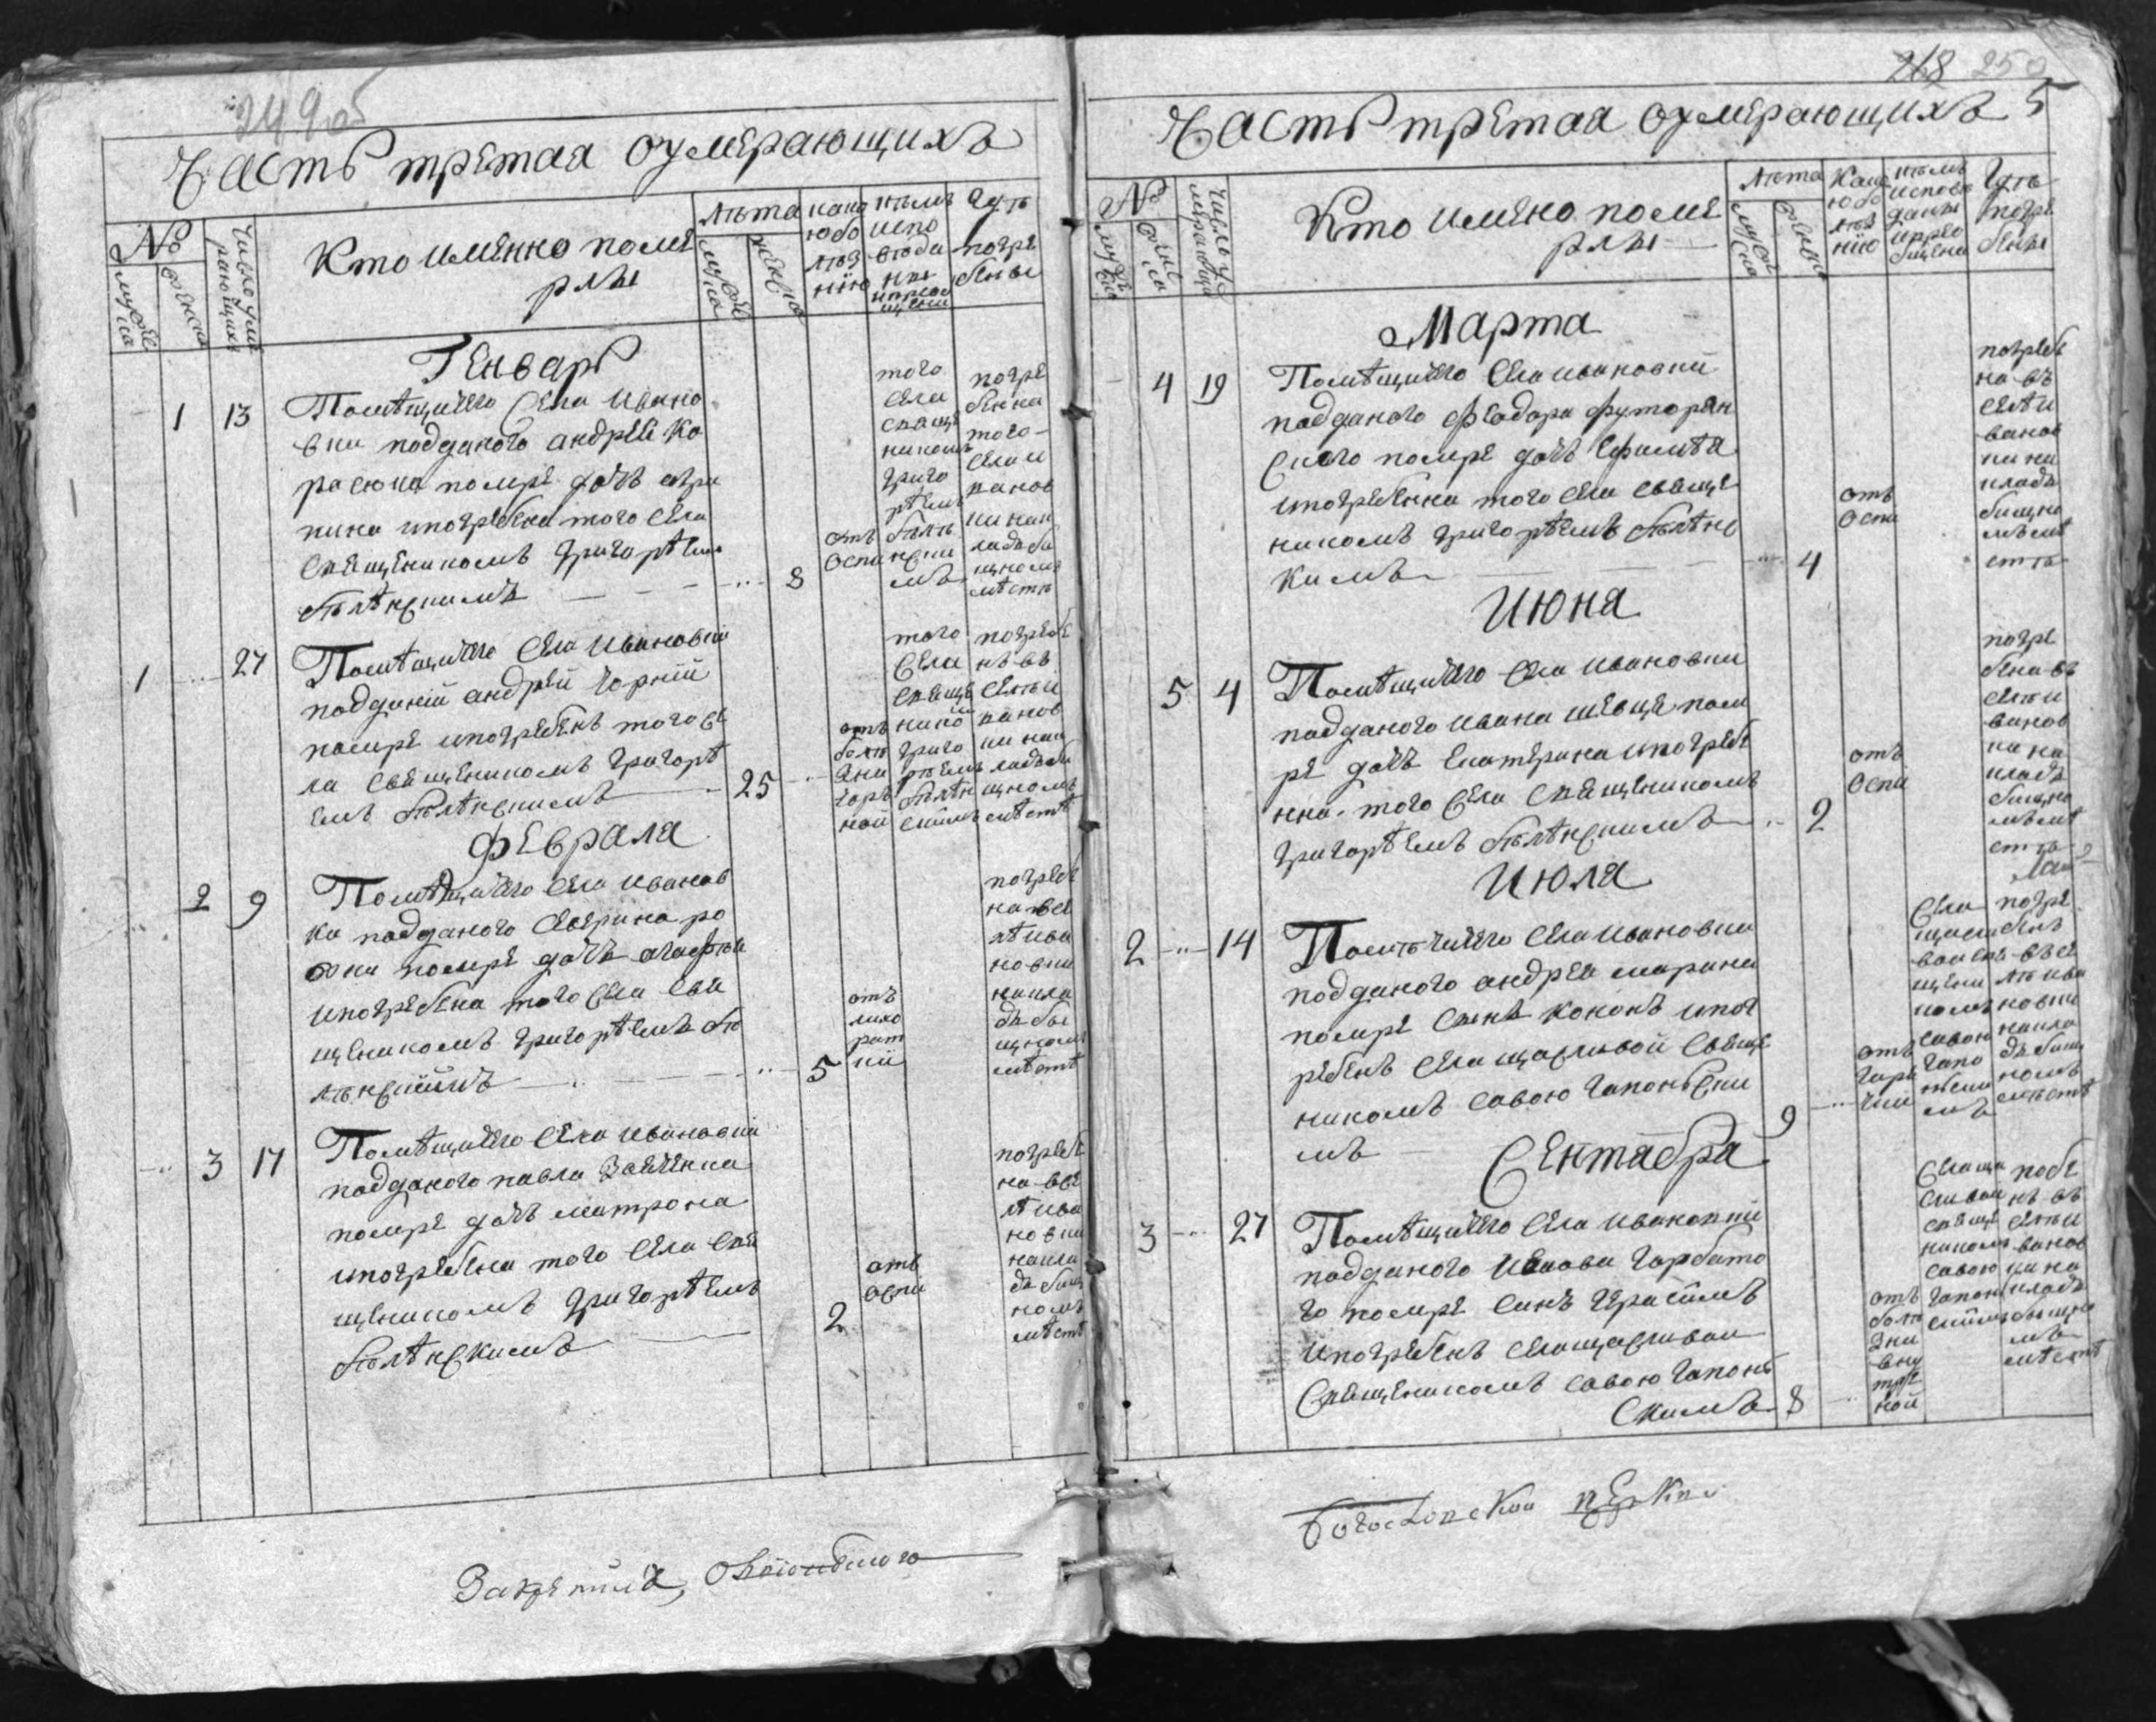 249об
Часть третая оумерающихъ
№
мужеска
женска
Число умирающихъ
Кто именно поме
рлы
Лѣта
мужеска
женска
какою бо
лѣз
нію
кѣмъ
испо
вѣда
ны
и
прео
щени
Гдѣ
погре
бены
Генварь
1 13
Помѣщичего села ивано
вки подданого андрей ко
расюка помре дочь
пина и погребена того села
священикомъ григорѣемъ
бѣлѣнскимъ 8
отъ
оспи
того
села
свяще
никомъ
григо
рѣемъ
бѣлѣ
нски
мъ
погре
бена
того
села и
ванов
ки на к
ладьби
щномъ
мѣстѣ
1 27
Помѣщичего села ивановки
поддгиній андрей чорній
помре и погребенъ того се
ла священикомъ григорѣ
емъ бѣлѣнскимъ 25
отъ
болѣ
зни
горъ
кои
того
села
свяще
нико
григо
рѣемъ
бѣлѣн
скимъ
погребе
нъ въ
селѣ и
ванов
ки на к
ладьби
щномъ
мѣстѣ
Феврала
2 9
Помѣщичего села иванов
ки подданого Аверина ро
помре дочь агафія
и погребена того села свя
щеникомъ григорѣемъ бѣ
лѣнскимъ 5
отъ
лихо
рат
кы
погребе
на въ се
лѣ ива
новки
на кла
дьби
щномъ
мѣстѣ
3 17
Помѣщичего села ивановки
подданого павла Заиченка
помре дочь матрона
и погребена того села свя
щеникомъ григорѣемъ
бѣлѣнскимъ 2
отъ
оспи
погребе
на в се
лѣ ива
новки
на кла
дьбищ
номъ
мѣстѣ
Закрепилъ,
268 250
5
Часть третая оумерающихъ
№
мужеска
женска
Число у
мерающи
Кто имено поме
рлы
Лѣта
мужеска
женска
Какою
бо
лѣз
нію
кѣмъ
исповѣ
даны
и прео
бщены
Гдѣ
погре
бены
Марта
4 19
Помѣщичего села ивановки
подданого Феадора футорян
ского помре дочь Ефимѣя
и погребенна того села свяще
никомъ григорѣемъ бѣлѣнс
кимъ 4
отъ
оспи
погребе
на въ
селѣ и
ванов
ки на
кладь
бищно
мъ мѣ
стѣ
Июня
5 4
Помѣщичего села ивановки
подданого ивана шевца пом
ре дочь Екатерина и погребе
нна того села священикомъ
григорѣемъ бѣлѣнскимъ 2
отъ
оспи
погре
бена въ
селѣ и
ванов
ки на
кладь
бищно
мъ мѣ
стѣ
Июля
2 14
Помѣщичего села ивановки
подданого андрея марина
помре синъ кононъ и пог
ребенъ села щасливой свяще
никомъ савою гапонвски
мъ 9
отъ
горя
чки
села
щасли
вои свя
щени
комъ
савою
гапо
нвски
мъ
погре
бенъ
въ се
лѣ ива
новки
на кла
дьбищ
номъ
мѣстѣ
Сентабра
3 27
Помѣщичего села ивановки
подданого Иакова Горбато
го помре синъ герасимъ
и погребенъ села щасливои
священикомъ савою гапонв
скимъ 8
отъ
болѣ
зни
вну
тре
ной
села ща
сливои
свяще
никомъ
савою
гапонв
скимъ
погбе
нъ въ
селѣ и
ванов
ки на
кладь
бищно
мъ
мѣстѣ
Богословской церкви